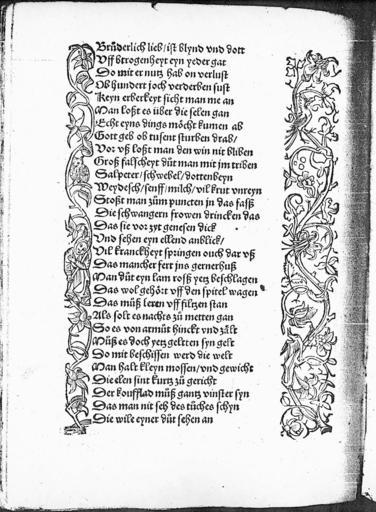 Brůderlich lieb/ist blynd vnd dott
Vff btrogenheyt eyn yeder gat
Do mit er nutz hab on verlust
Ob hundert joch verderben sust
Keyn erberkeyt sicht man me an
Man loßt es über die selen gan
Echt eyns dings möcht kumen ab
Gott geb ob tusent sturben drab/
Vor vß loßt man den win nit bliben
Groß falscheyt důt man mit jm triben
Salpeter/schwebel/dottenbeyn
Weydesch/senff/milch/vil krut vnreyn
Stoßt man zům puncten in das faß
Die schwangern frowen drincken das
Das sie vor zyt genesen dick
Vnd sehen eyn ellend anblick/
Vil kranckheyt springen ouch dar vß
Das mancher fert jns gernerhuß
Man důt eyn lam roß yetz beschlagen
Das wol gehört vff den spitel wagen
Das můß leren vff filtzen stan
Als solt es nachts zů metten gan
So es von armůt hinckt vnd zält
Můß es doch yetz geltten syn gelt
Do mit beschissen werd die welt
Man halt kleyn mossen/vnd gewicht
Die elen sint kurtz zů gericht
Der koufflad můß gantz vinster syn
Das man nit seh des tůches schyn
Die wile eyner důt sehen an